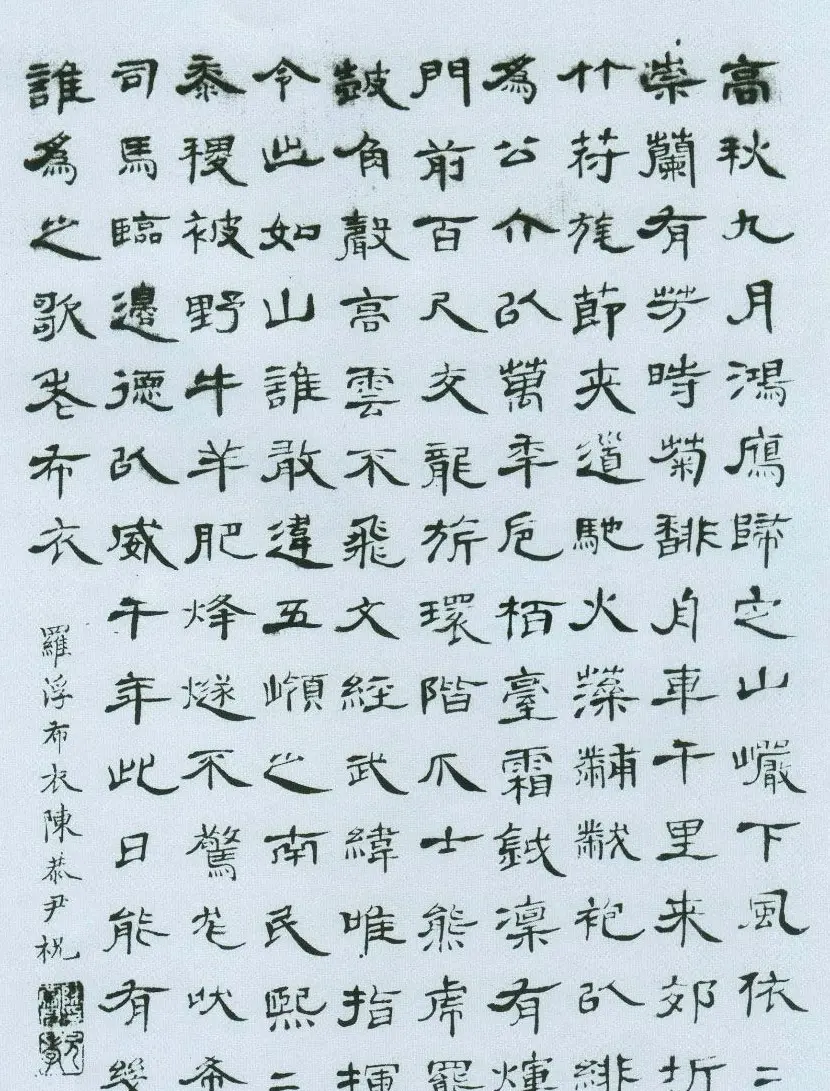 高秋九月鴻鴈歸定山巖下風依二
崇蘭有芳時菊馡舟車千里来郊圻
竹苻旄節夾道馳火藻黼黻袍以緋
爲公介以萬年卮栢臺霜鉞凜有煇
門前百尺交龍旂環階爪士熊虎羆
鼓角聲高雲不飛文經武緯唯指揮
令此如山誰敢違五嶺之南民熙二
黍稷被野牛羊肥烽燧不驚尨吠希
司馬臨邊德以威千年此日能有幾
誰爲之歌老布衣
羅浮布衣陳恭尹祝